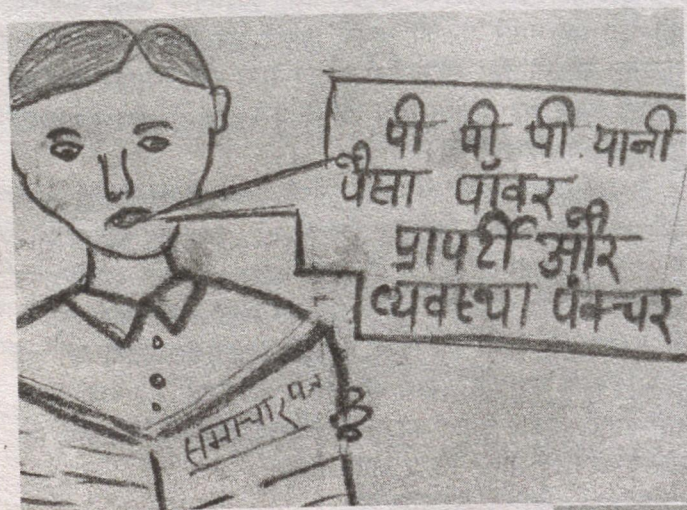 पी पी पी यानी
पैसा पॉवर
प्रापर्टी और
व्यवस्था पंक्चर
समाचार पत्र